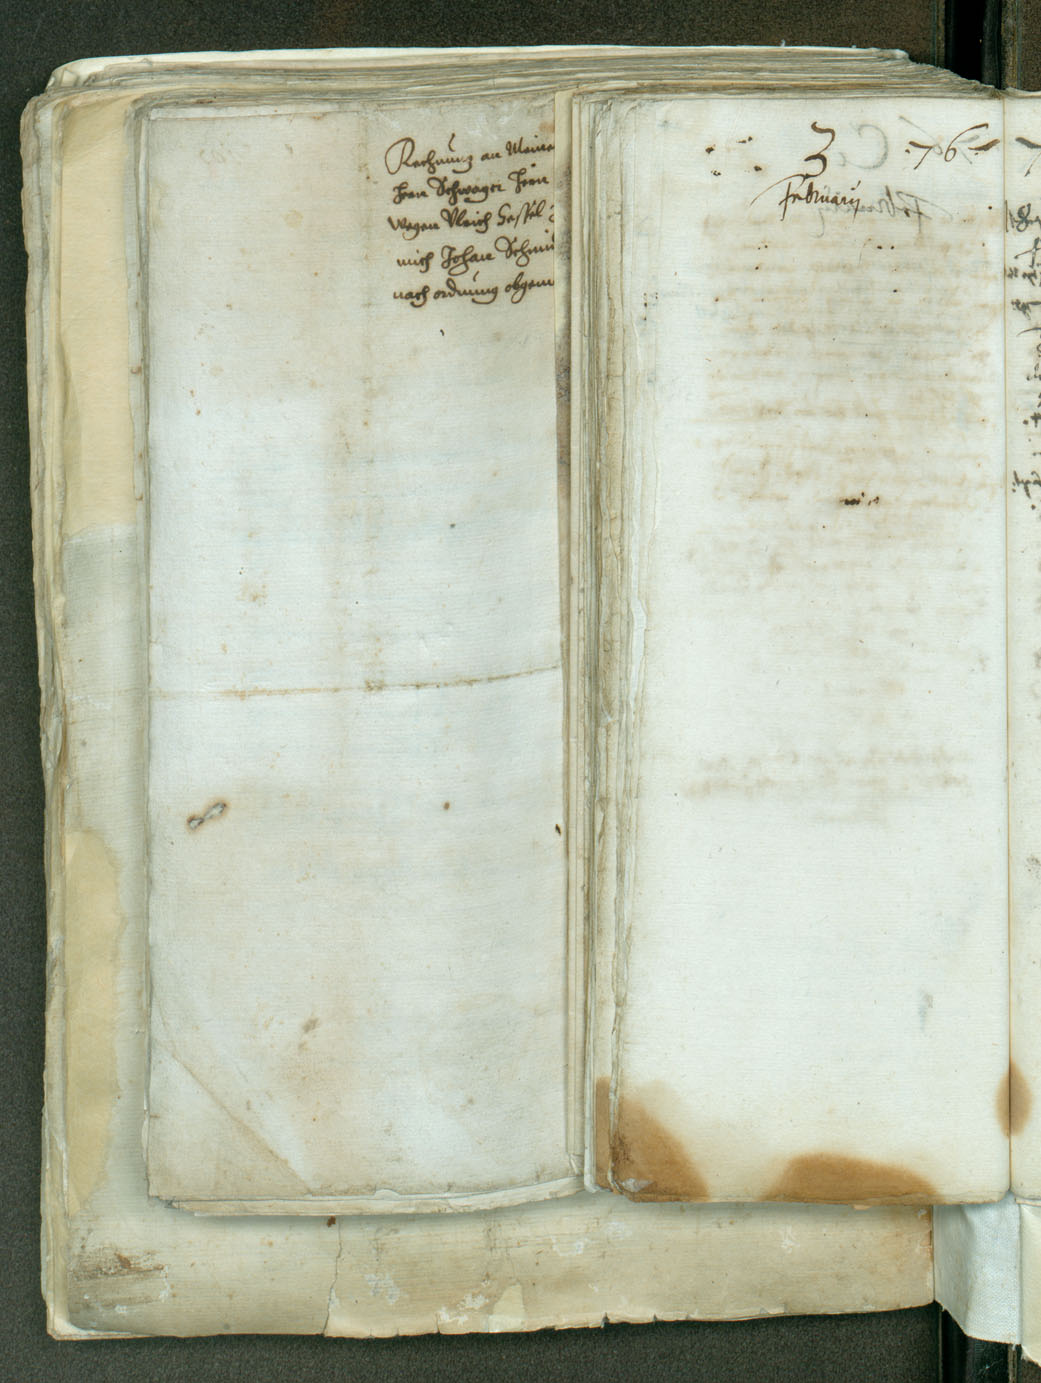 Rechnung an Meine
hern Schwager hern
wegen Vlrich Hessel
mich Johan Schmi
nach ordnung obgem
3 · 76 ·
February